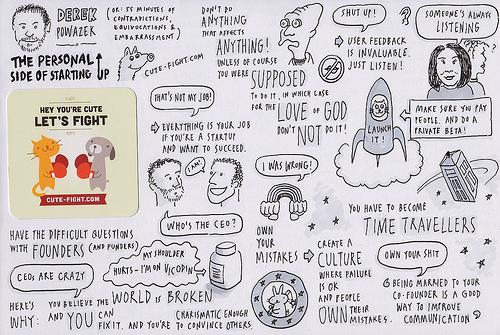 DEREK
POWAZEK
(OR: 55 MINUTES OF
CONTRADICTIONS,
EQUIVOCATIONS &
EMBARRASSMENT)
THE PERSONAL
SIDE OF STARTING UP
CUTE-FIGHT.COM
HEY YOU'RE CUTE
LET'S FIGHT
CUTE-FIGHT.COM
DON'T DO
ANYTHING
THAT AFFECTS
ANYTHING!
UNLESS OF COURSE
YOU WERE
SUPPOSED
TO DO IT, IN WHICH CASE
FOR THE LOVE OF GOD
DON'T NOT DO IT!
SHUT UP!
USER FEEDBACK
IS INVALUABLE.
JUST LISTEN!
SOMEONE'S ALWAYS
LISTENING
?
THAT'S NOT MY JOB!
EVERYTHING IS YOUR JOB
IF YOU'RE A STARTUP
AND WANT TO SUCCEED.
LAUNCH
IT!
MAKE SURE YOU PAY
PEOPLE. AND DO A
PRIVATE BETA!
I AM!
WHO'S THE CEO?
I WAS WRONG!
OWN
YOUR
MISTAKES
CREATE A
CULTURE
WHERE FAILURE
IS OK
AND PEOPLE
OWN THEIR
MISTAKES.
YOU HAVE TO BECOME
TIME TRAVELLERS
HAVE THE DIFFICULT QUESTIONS
WITH FOUNDERS (AND FUNDERS)
CEOs ARE CRAZY
MY SHOULDER
HURTS - I'M ON VICODIN
HERE'S
WHY:
YOU BELIEVE THE WORLD IS BROKEN
AND YOU CAN
FIX IT. AND YOU'RE
CHARISMATIC ENOUGH
TO CONVINCE OTHERS.
OWN YOUR SHIT
BEING MARRIED TO YOUR
CO-FOUNDER IS A GOOD
WAY TO IMPROVE
COMMUNICATION